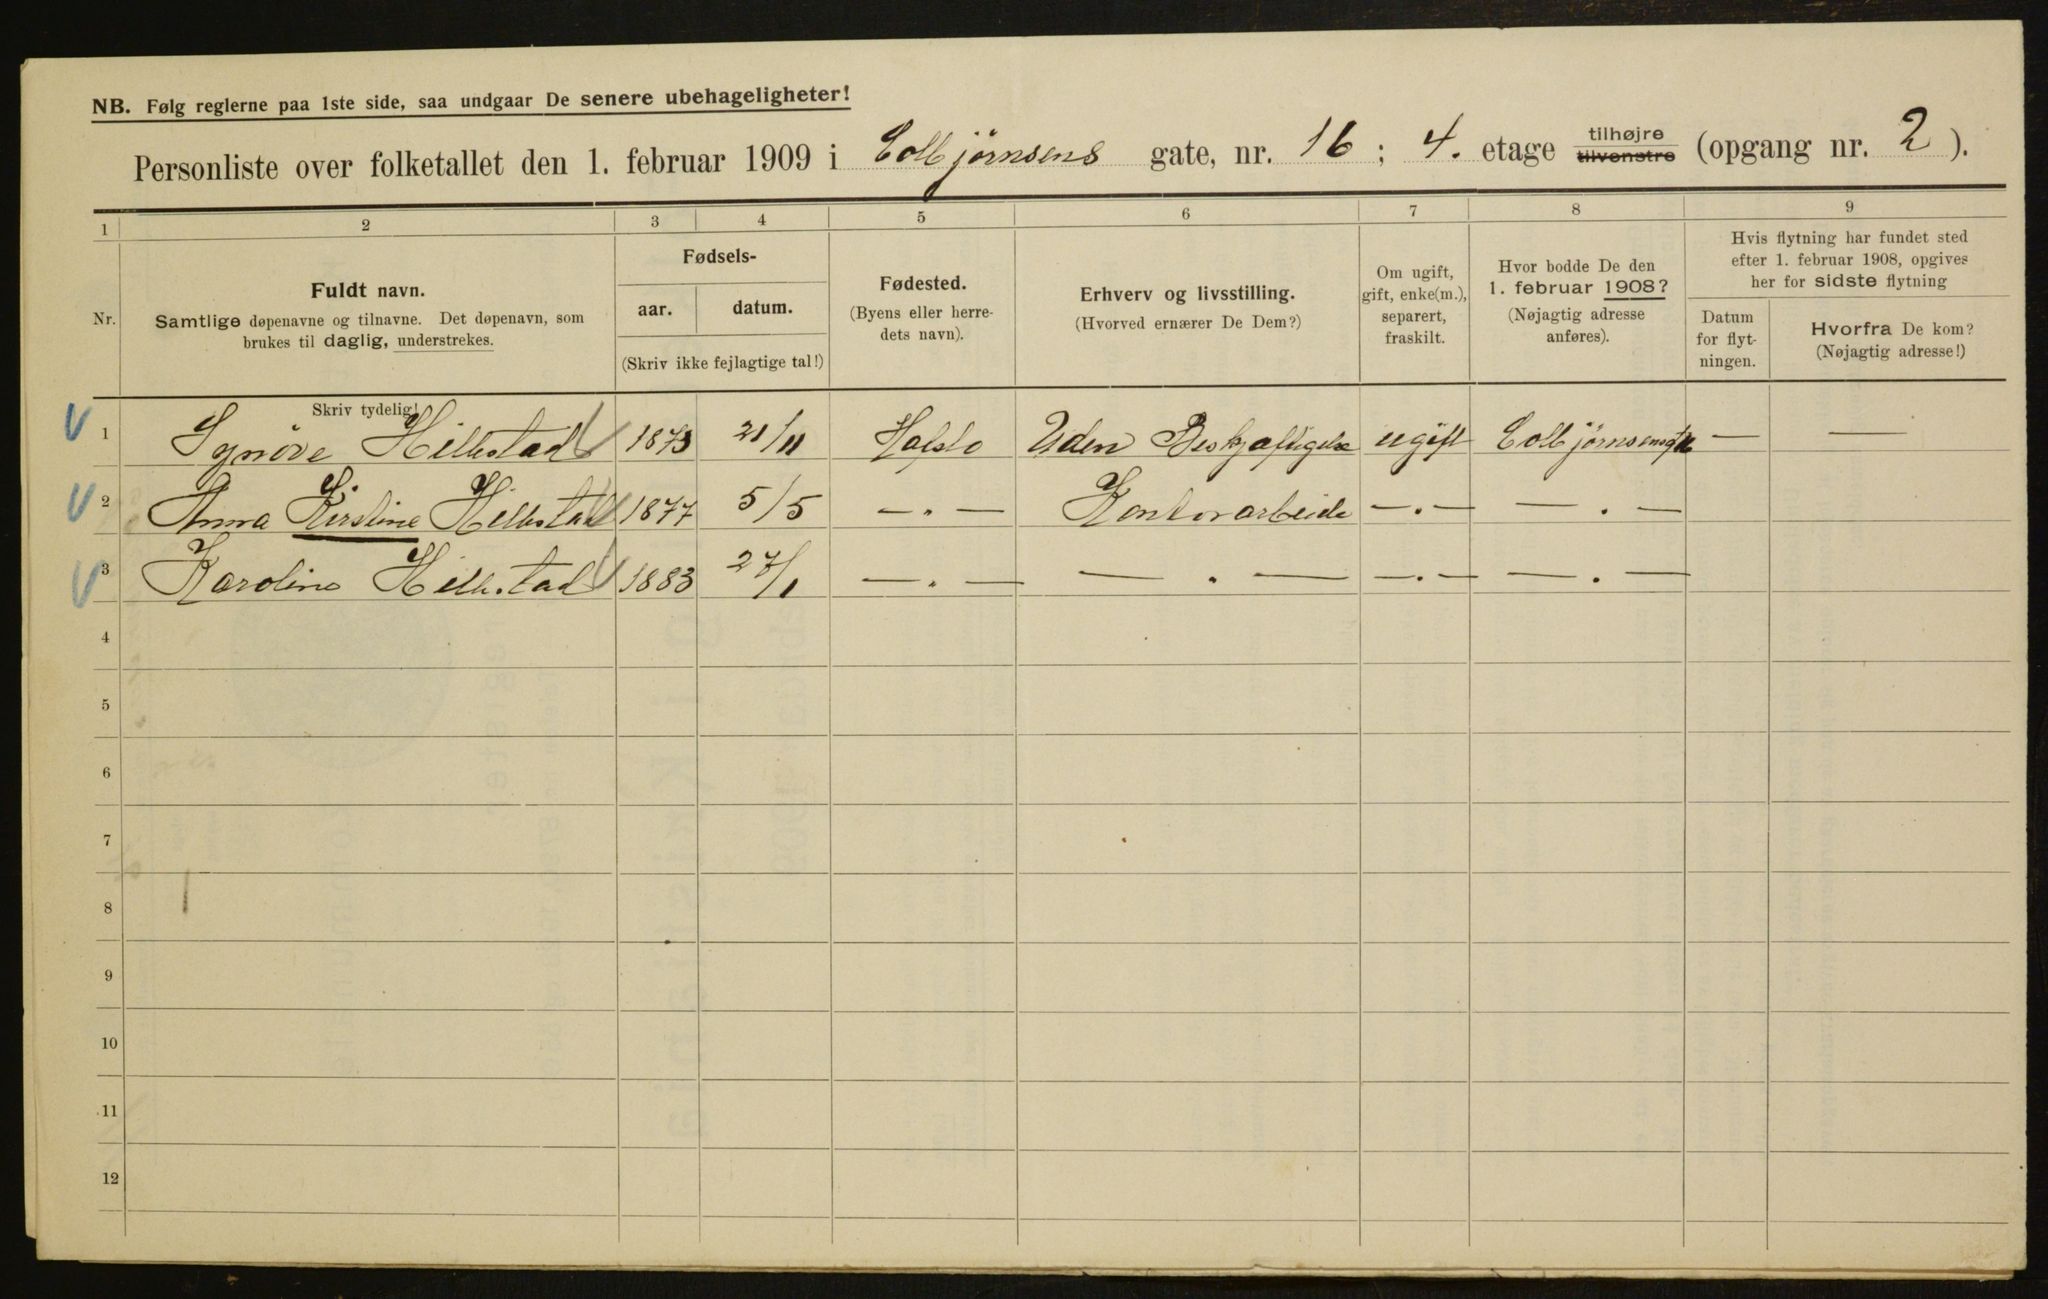 NB. Følg reglerne paa 1ste side, saa undgaar De senere ubehageligheter!
Personliste over folketallet den 1. februar 1909 i Colbjørnsens gate, nr. 16; 4. etage tilhøjre tilvenstre (opgang nr. 2).
1 2 3 4 5 6 7 8 9
Nr.
Fuldt navn.
Samtlige døpenavne og tilnavne. Det døpenavn, som
brukes til daglig, understrekes.
Fødsels-
aar. datum.
(Skriv ikke fejlagtige tal!)
Fødested.
(Byens eller herre-
dets navn).
Erhverv og livsstilling.
(Hvorved ernærer De Dem?)
Om ugift,
gift, enke(m.),
separert,
fraskilt.
Hvor bodde De den
1. februar 1908?
(Nøjagtig adresse
anføres).
Hvis flytning har fundet sted
efter 1. februar 1908, opgives
her for sidste flytning
Datum
for flyt-
ningen.
Hvorfra De kom?
(Nøjagtig adresse!)
Skriv tydelig!
1 Synöve Hillestad 1873 21/11 Hafslo Uden Beskjæftigelse ugift Colbjørnsensgt 16 — —
2 Anna Kirstine Hillestad 1877 5/5 —"— Kontorarbeide —"— —"—
3 Karoline Hillestad 1883 27/1 —"— —"— —"— —"—
4
5
6
7
8
9
10
11
12